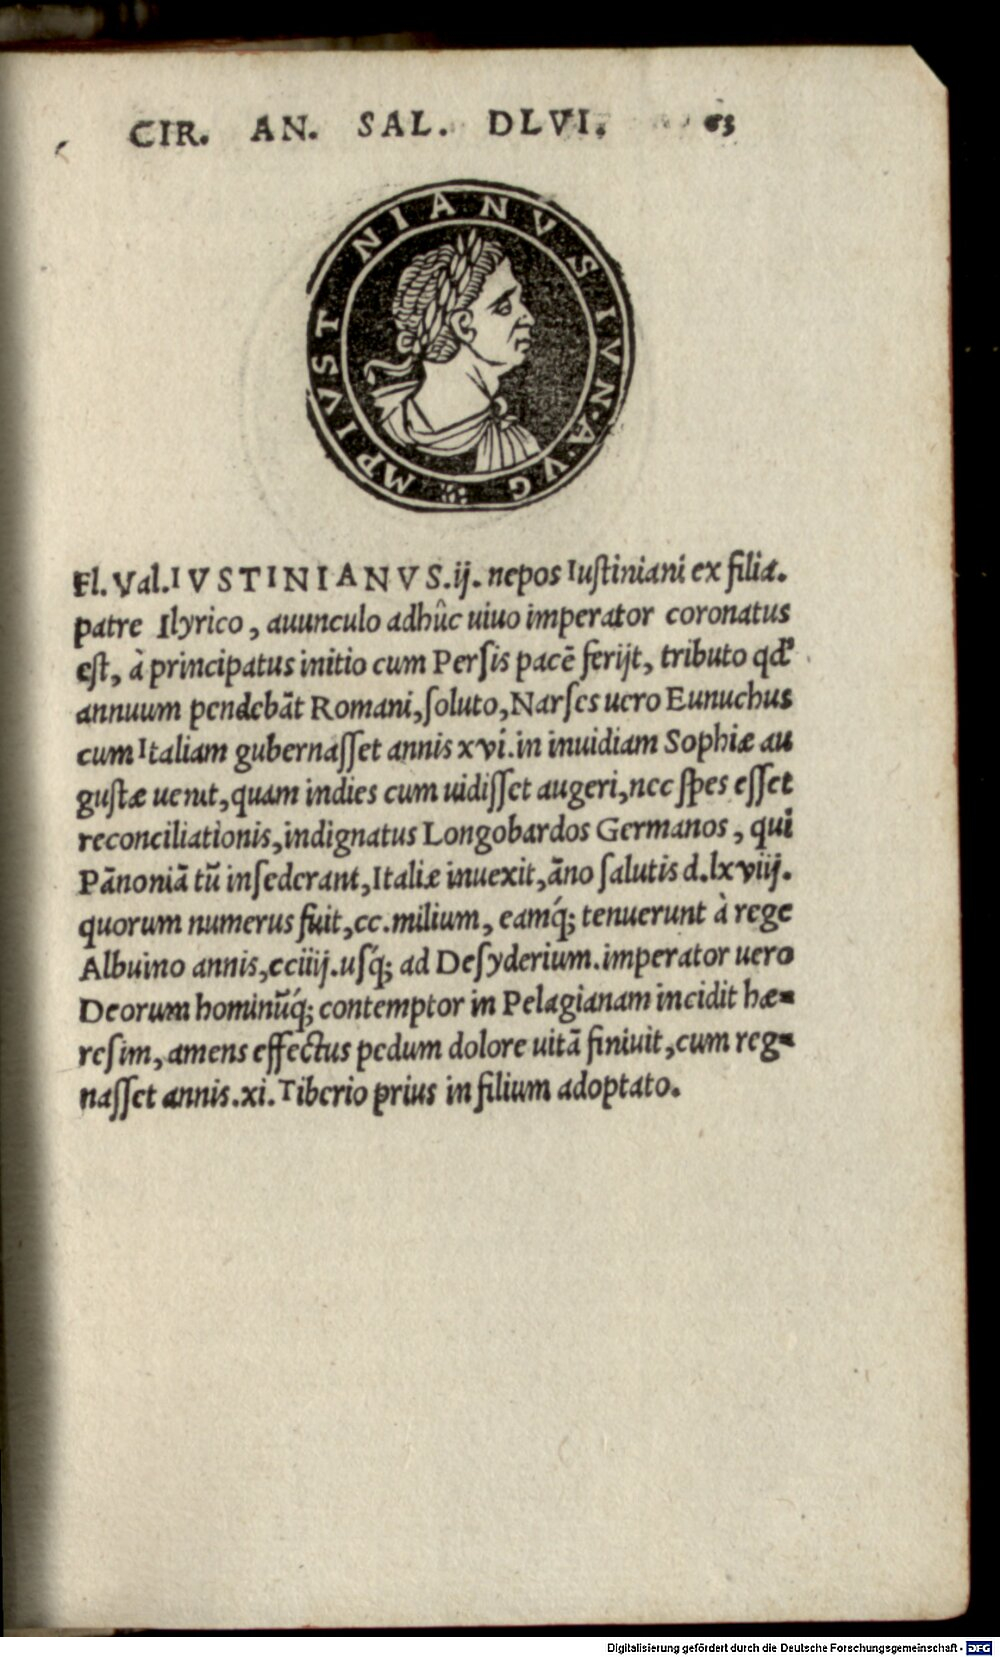 CIR. AN. SAL. DLVI. 63
MP IVST NIANVS IVN. AVG
Fl. Val. IVSTINIANVS. ij. nepos Iustiniani ex filia.
patre Ilyrico, auunculo adhûc uiuo imperator coronatus
est, à principatus initio cum Persis pacē ferijt, tributo qd'
annuum pendebāt Romani, soluto, Narses uero Eunuchus
cum Italiam gubernasset annis xvi. in inuidiam Sophiæ au
gustæ uenit, quam indies cum uidisset augeri, nec spes esset
reconciliationis, indignatus Longobardos Germanos, qui
Pānoniā tū insederant, Italiæ inuexit, āno salutis d.lxviij.
quorum numerus fuit, cc. milium, eamq́; tenuerunt à rege
Albuino annis, cciiij. usq́; ad Desyderium. imperator uero
Deorum hominūq́; contemptor in Pelagianam incidit hæ-
resim, amens effectus pedum dolore uitā finiuit, cum reg-
nasset annis. xi. Tiberio prius in filium adoptato.
Digitalisierung gefördert durch die Deutsche Forschungsgemeinschaft - DFG